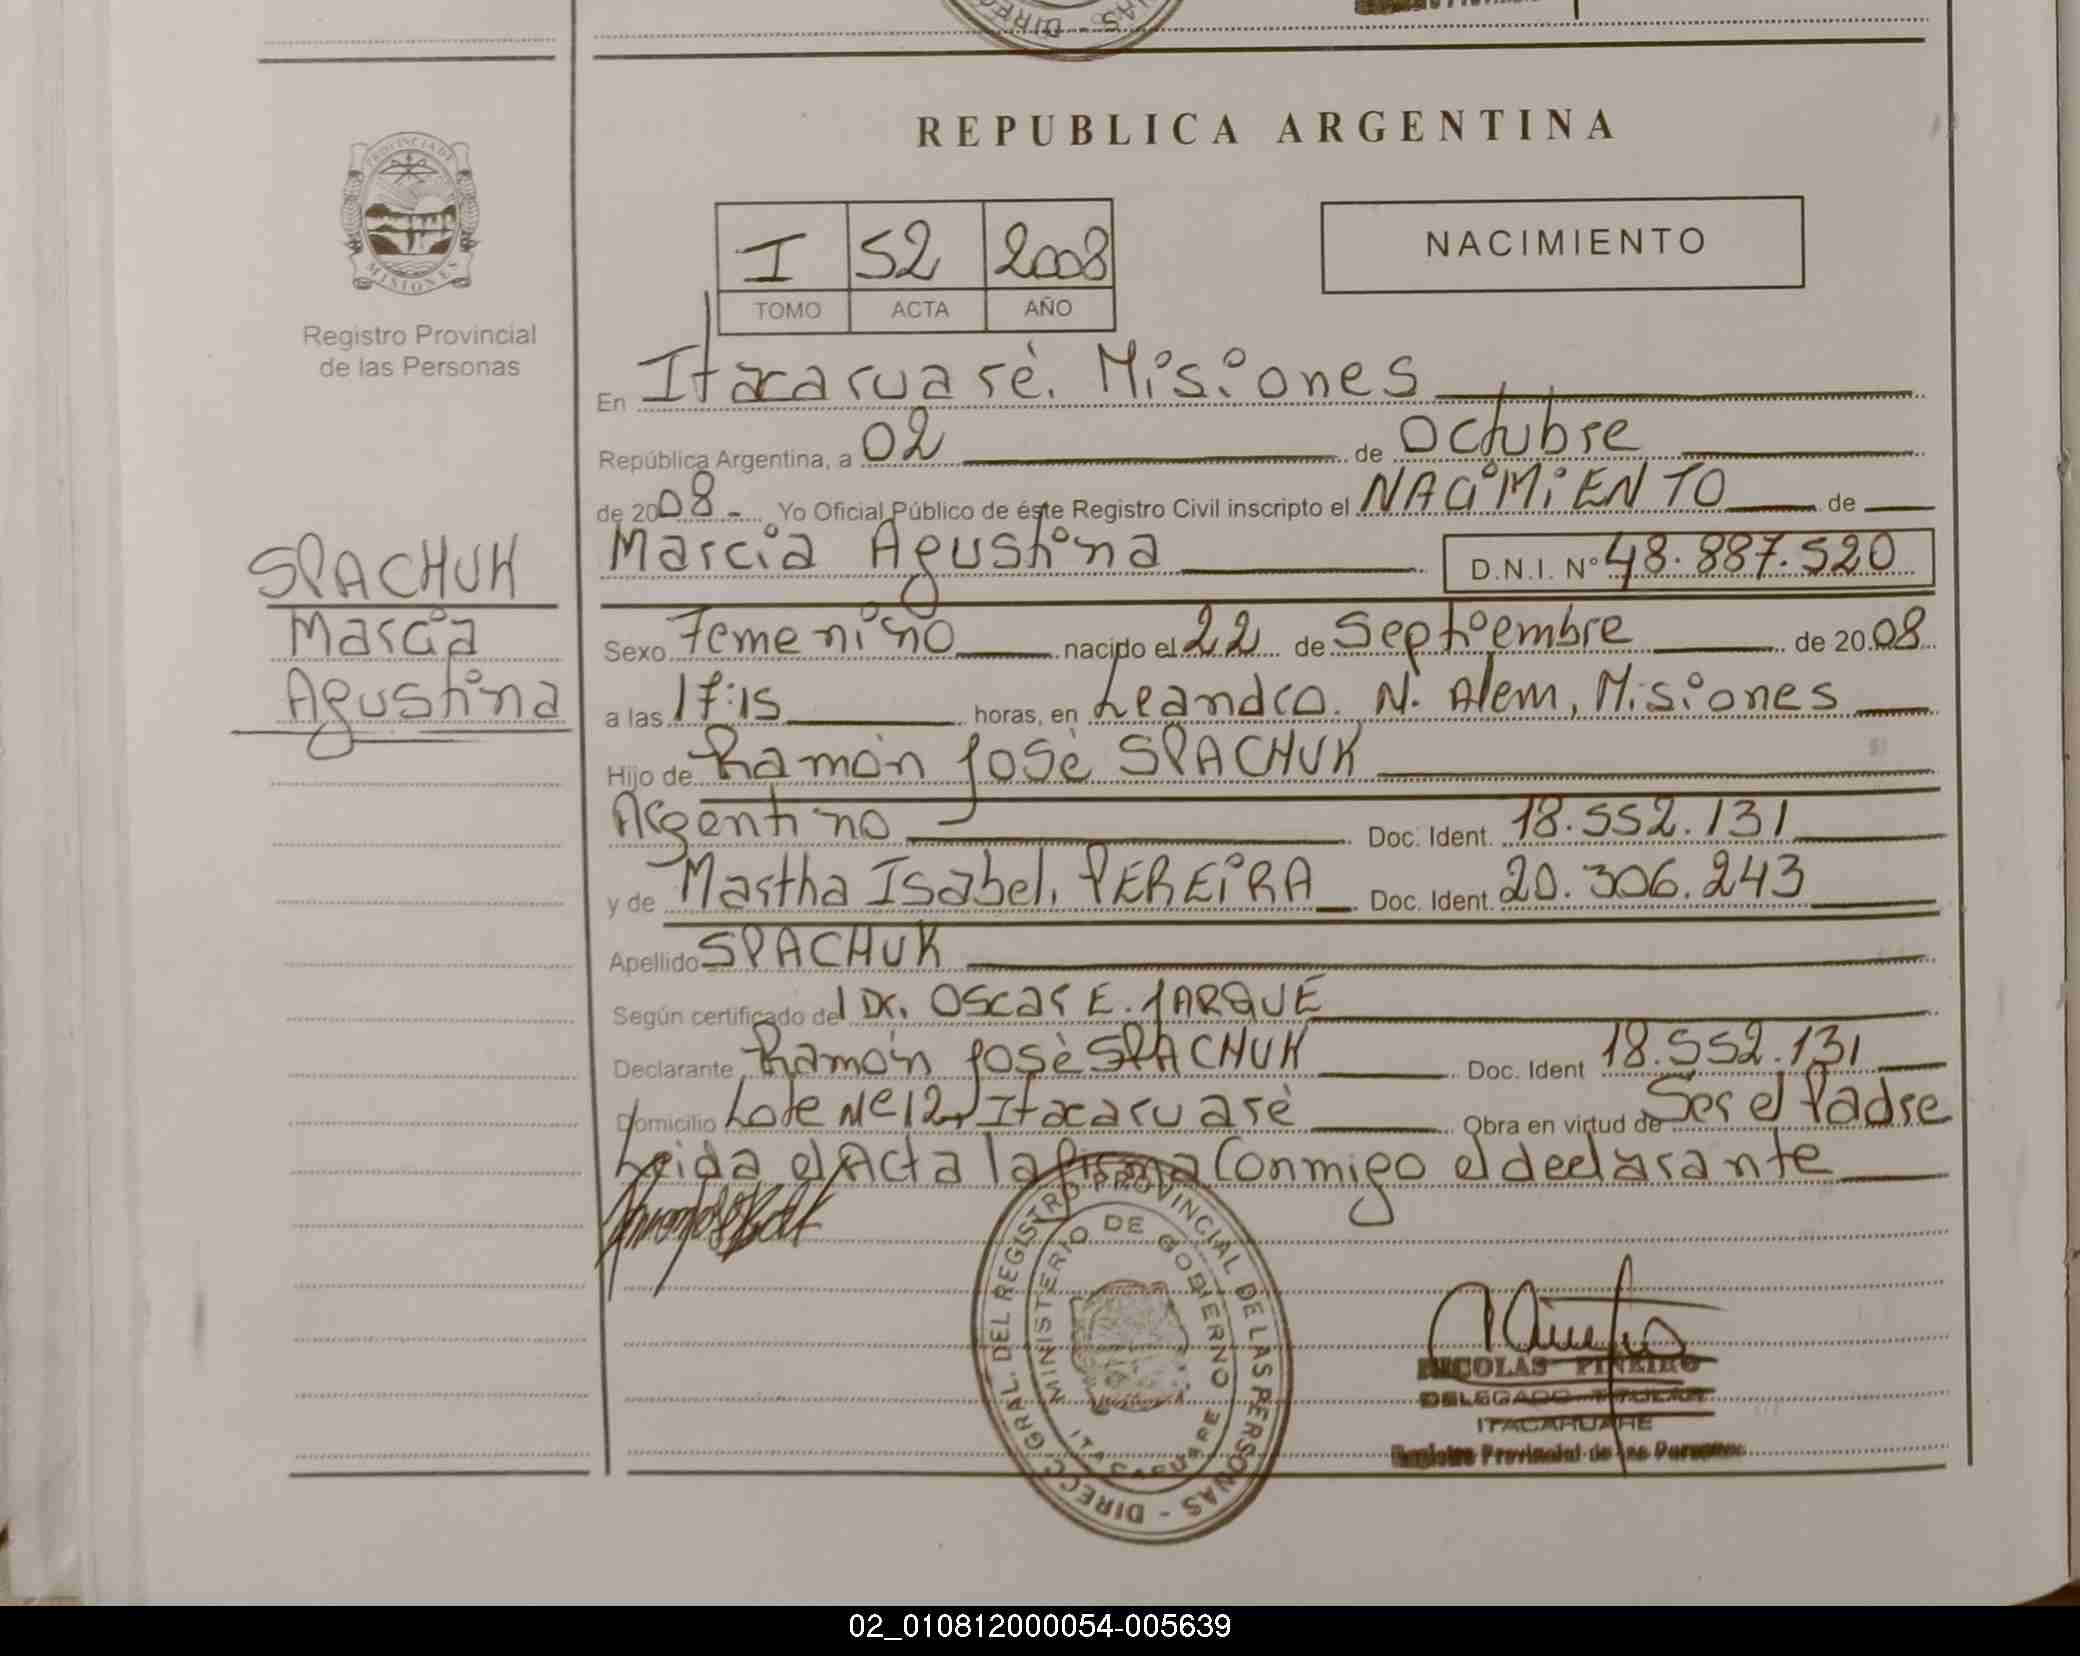 REPUBLICA ARGENTINA
PROVINCIA DE
MISIONES
Registro Provincial
de las Personas
I 52 2008
TOMO ACTA AÑO
NACIMIENTO
En Itacaruaré. Misiones
República Argentina, a 02 de Octubre
de 2008 - Yo Oficial Público de éste Registro Civil inscripto el NACiMiENTO de
Marcia Agustina D.N.I. N° 48.887.520
SPACHUK
Marcia
Agustina
Sexo Femenino nacido el 22 de Septiembre de 2008
a las 17:15 horas, en Leandro. N. Alem, Misiones
Hijo de Ramón José SPACHUK
Argentino Doc. Ident. 18.552.131
y de Martha Isabel. PEREiRA Doc. Ident. 20.306.243
Apellido SPACHUK
Según certificado del Dr. Oscar E. JARQUE
Declarante Ramón José SPACHUK Doc. Ident 18.552.131
Domicilio Lote Nº 12, Itacaruaré Obra en virtud de Ser el Padre
Leida el Acta la firma Conmigo el declarante
DIRECC. GRAL. DEL REGISTRO PROVINCIAL DE LAS PERSONAS -
MINISTERIO DE GOBIERNO
NICOLAS PIÑEIRO
DELEGADO TITULAR
ITACARUARE
Registro Provincial de las Personas
02_010812000054-005639